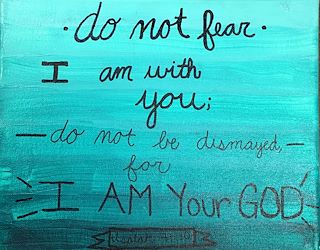 ·do not fear·
I am with
you;
—do not be dismayed,—
for
I AM Your GOD
Isaiah 41:10